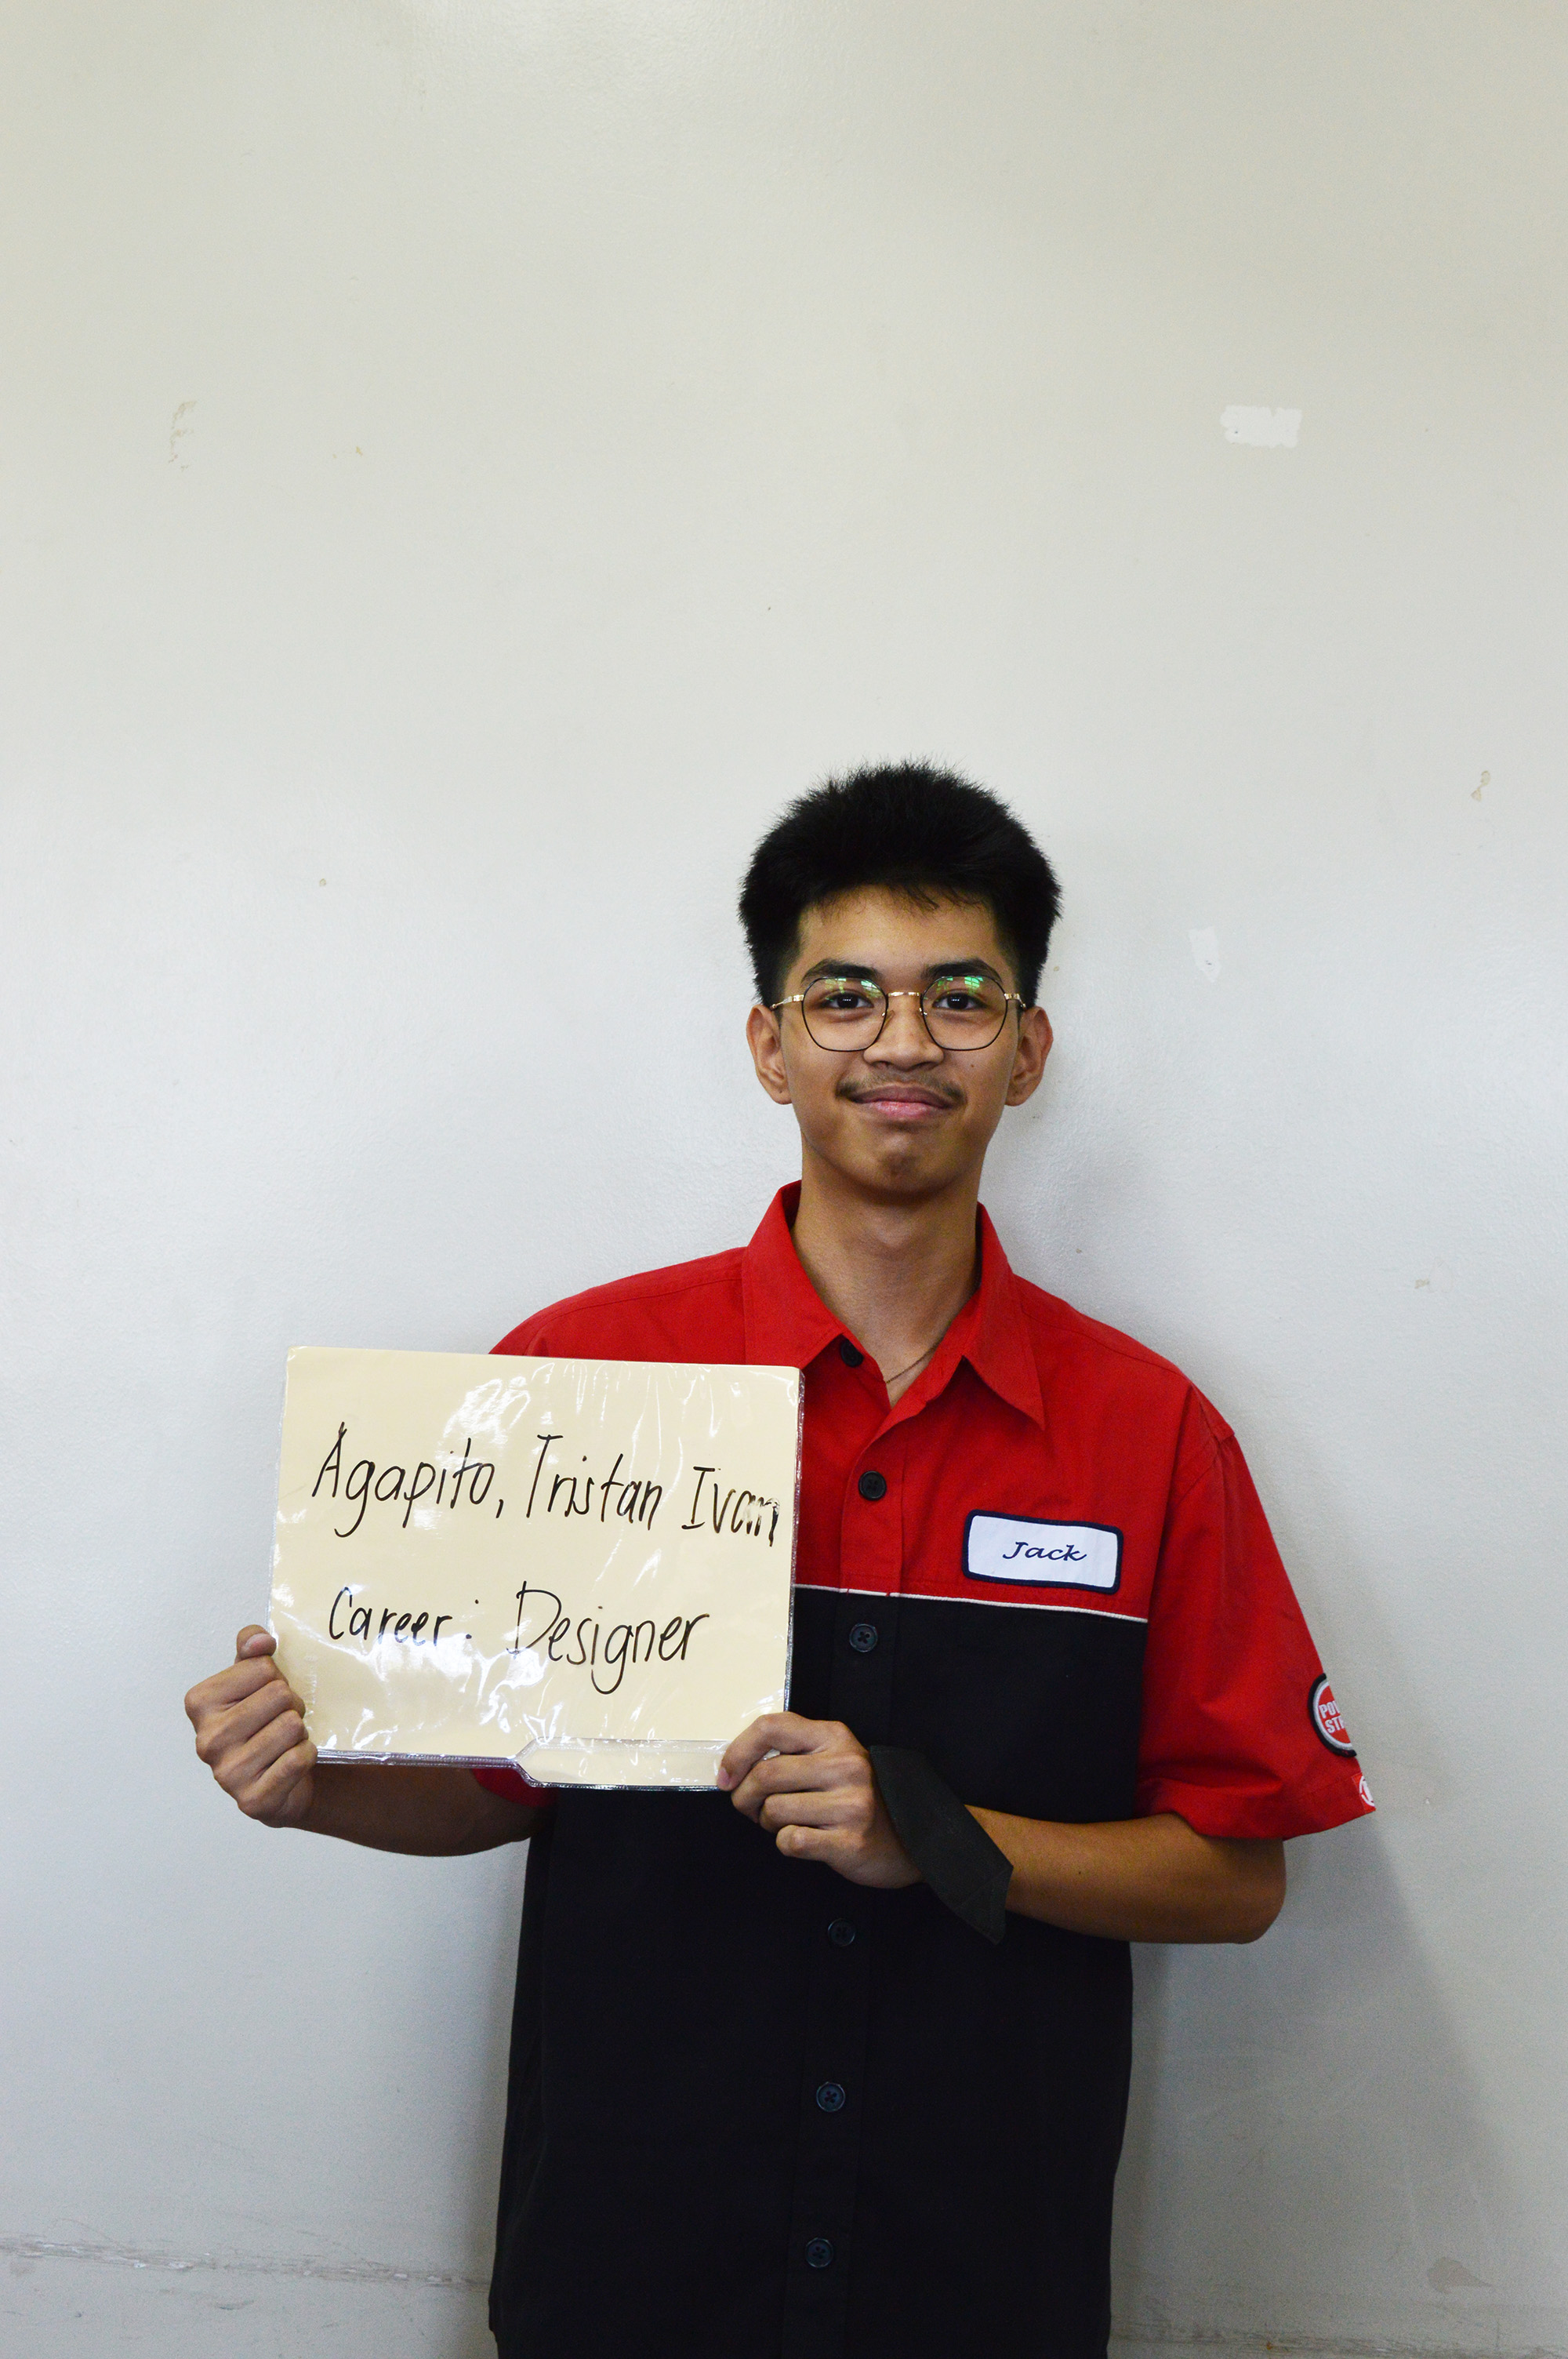 Agapito, Tristan Ivan
Career: Designer
Jack